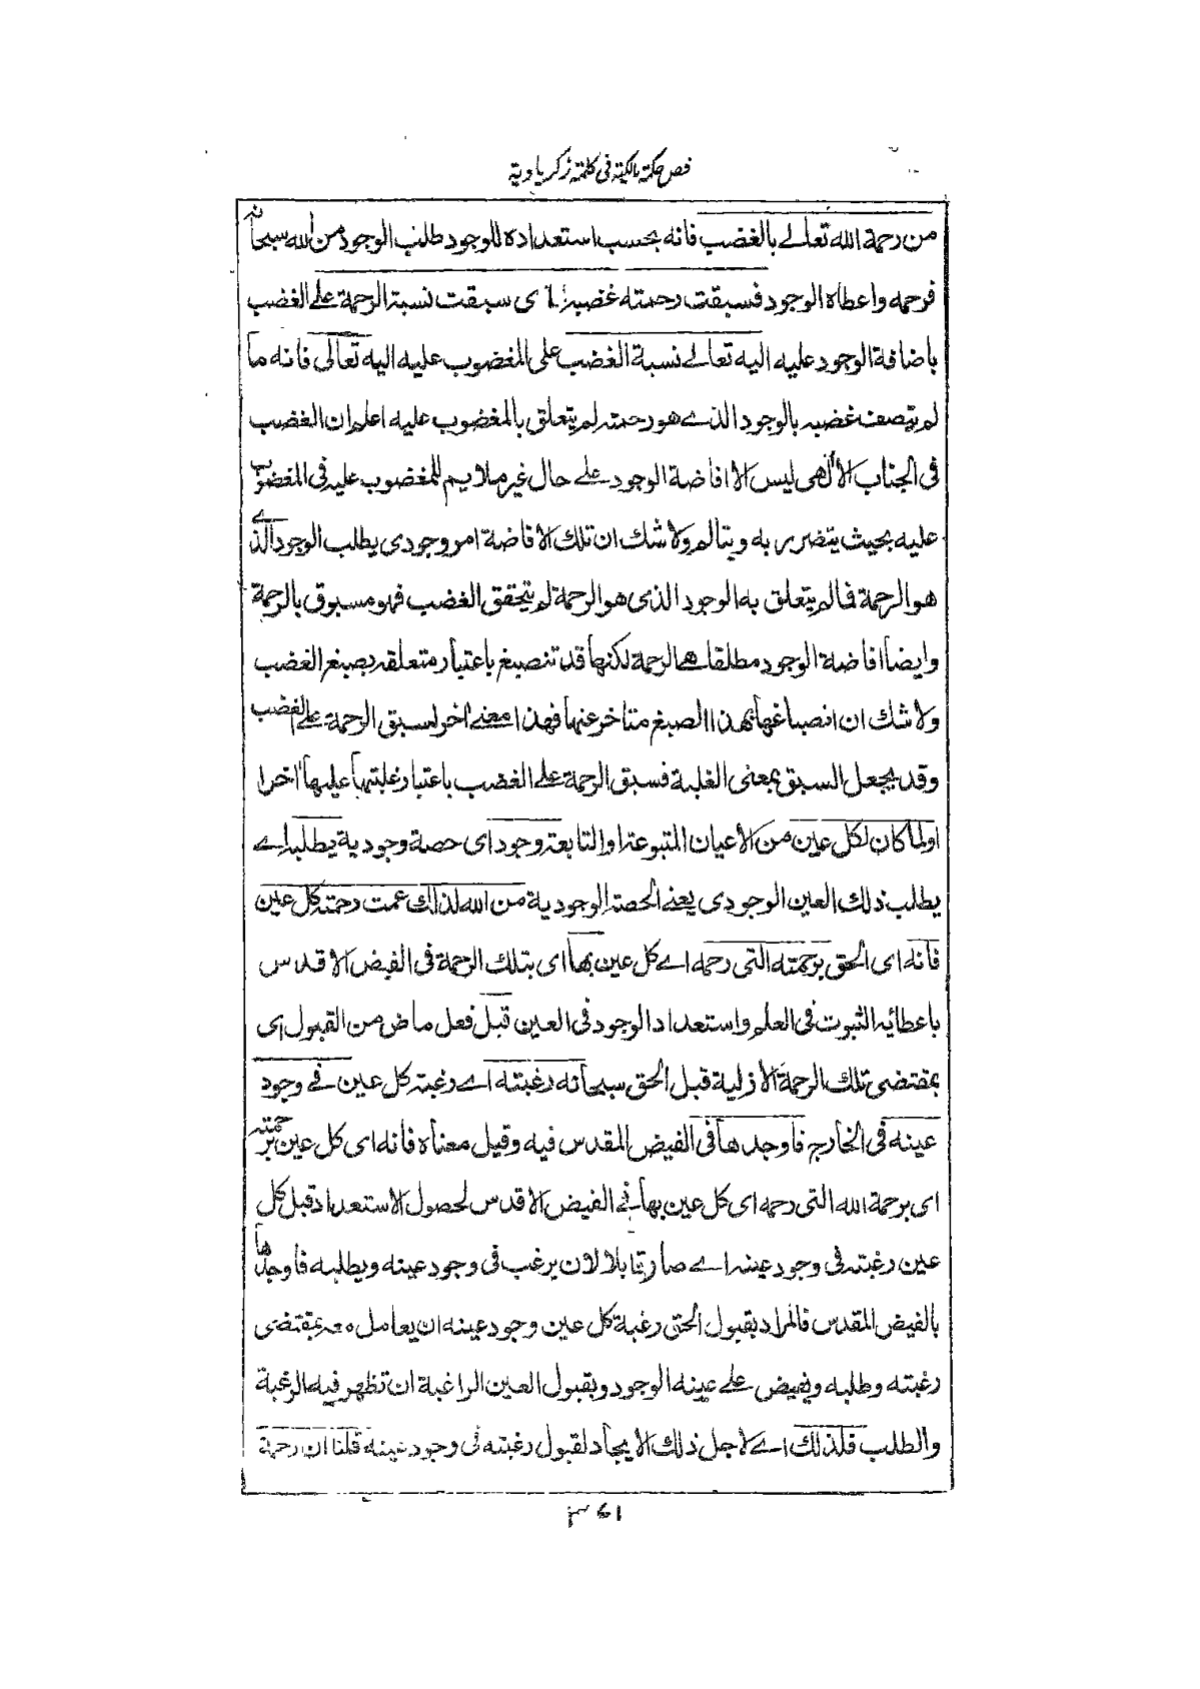 فص حكمة مالكية فى كلمة زكرياوية
من رحمة الله تعالے بالغضب فانه بحسب استعداده للوجود طلب الوجود من الله سبحانه
فرحمه واعطاه الوجود فسبقت رحمته غضبه اى سبقت نسبة الرحمة علے الغضب
باضافة الوجود عليه اليه تعالے نسبة الغضب على المغضوب عليه اليه تعالى فانه ما
لم يتصف غضبه بالوجود الذے هو رحمته لم يتعلق بالمغضوب عليه اعلم ان الغضب
فى الجناب الالهى ليس الا افاضة الوجود علے حال غير ملايم للمغضوب عليه فى المغضوب
عليه بحيث يتضرر به ويتالم ولا شك ان تلك الافاضة امر وجودى يطلب الوجود الذے
هو الرحمة فمالم يتعلق به الوجود الذى هو الرحمة لم يتحقق الغضب فهو مسبوق بالرحمة
وايضا افاضة الوجود مطلقا هے الرحمة لكنها قد تنصبغ باعتبار متعلقه بصبغ الغضب
ولا شك ان انصباغها بهذا الصبغ متاخر عنها فهذا معنے اخر لسبق الرحمة علے الغضب
وقد يجعل السبق بمعنى الغلبة فسبق الرحمة علے الغضب باعتبار غلبتها عليها اخرا
اولما كان لكل عين من الأعيان المتبوعة او التابعة وجود اى حصة وجودية يطلبه اے
يطلب ذلك العين الوجودى يعنے الحصة الوجودية من الله لذلك عمت رحمته كل عين
فانه اى الحق برحمته التى رحمه اے كل عين بها اى بتلك الرحمة فى الفيض الاقدس
باعطائه الثبوت فى العلم واستعداد الوجود فى العين قبل فعل ماض من القبول اى
بمقتضى تلك الرحمة الازلية قبل الحق سبحانه رغبته اے رغبة كل عين فے وجود
عينه فى الخارج فاوجدها فى الفيض المقدس فيه وقيل معناه فانه اى كل عين برحمته
اى برحمة الله التى رحمه اى كل عين بها فے الفيض الاقدس لحصول الاستعداد قبل كل
عين رغبته فى وجود عينه اے صار قابلا لان يرغب فى وجود عينه ويطلبه فاوجدها
بالفيض المقدس فالمراد بقبول الحق رغبة كل عين وجود عينه ان يعامل معه بمقتضى
رغبته وطلبه ويفيض علے عينه الوجود وبقبول العين الراغبة ان تظهر فيه الرغبة
والطلب فلذلك اے لاجل ذلك الايجاد لقبول رغبته فى وجود عينه قلنا ان رحمة